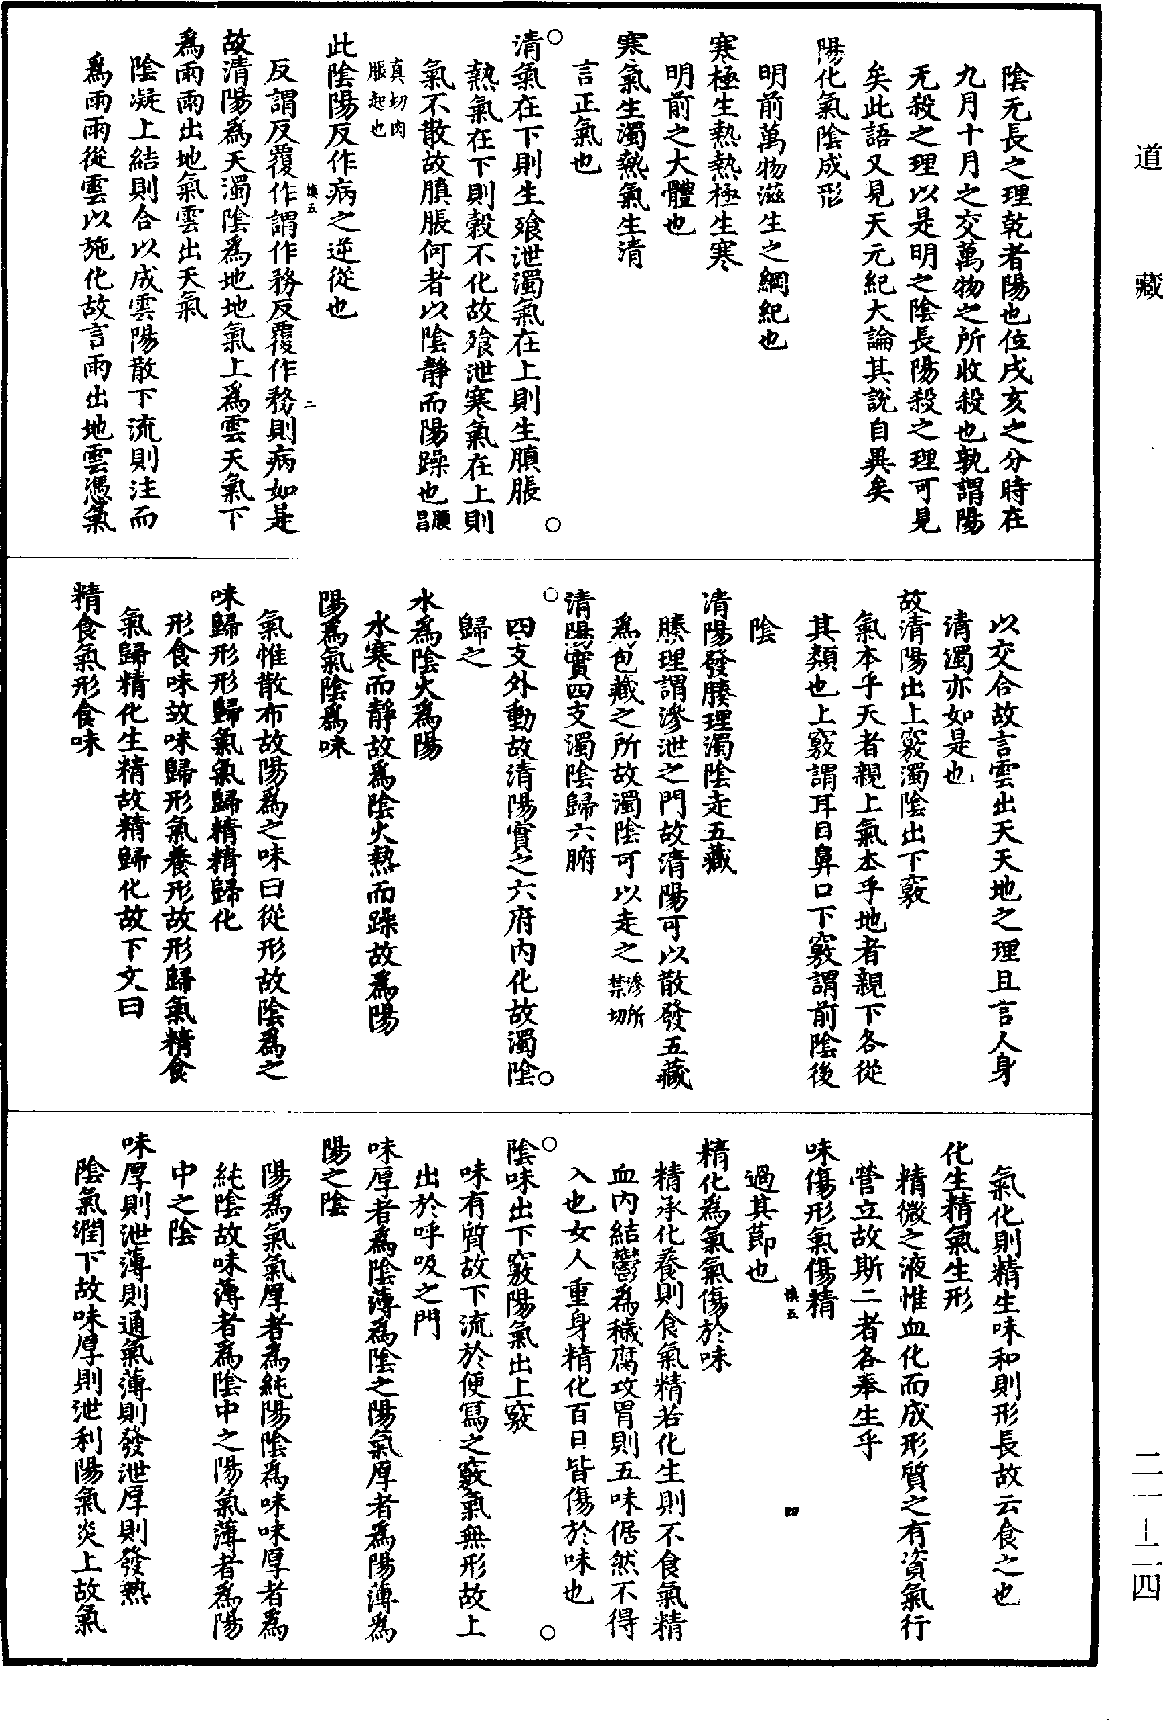 道藏
陰无長之理乾者陽也位戌亥之分時在
九月十月之交萬物之所收殺也孰謂陽
无殺之理以是明之陰長陽殺之理可見
矣此語又見天元紀大論其說自異矣
陽化氣陰成形
明前萬物滋生之綱紀也
寒極生熱熱極生寒
明前之大體也
寒氣生濁熱氣生清
言正氣也
清氣在下則生飱泄濁氣在上則生䐜脹
熱氣在下則穀不化故飱泄寒氣在上則
氣不散故䐜脹何者以陰靜而陽躁也䐜昌
真切肉
脹起也
此陰陽反作病之逆從也
反謂反覆作謂作務反覆作務則病如是
慎五 二
故清陽爲天濁陰爲地地氣上爲雲天氣下
爲雨雨出地氣雲出天氣
陰凝上結則合以成雲陽散下流則注而
爲雨雨從雲以施化故言雨出地雲憑氣
以交合故言雲出天天地之理且言人身
清濁亦如是也
故清陽出上竅濁陰出下竅
氣本乎天者親上氣本乎地者親下各從
其類也上竅謂耳目鼻口下竅謂前陰後
陰
清陽發腠理濁陰走五藏
腠理謂滲泄之門故清陽可以散發五藏
爲包藏之所故濁陰可以走之滲所禁切
清陽實四支濁陰歸六腑
四支外動故清陽實之六府內化故濁陰
歸之
水爲陰火爲陽
水寒而靜故爲陰火熱而躁故爲陽
陽爲氣陰爲味
氣惟散布故陽爲之味曰從形故陰爲之
味歸形形歸氣氣歸精精歸化
形食味故味歸形氣養形故形歸氣精食
氣歸精化生精故精歸化故下文曰
精食氣形食味
氣化則精生味和則形長故云食之也
化生精氣生形
精微之液惟血化而成形質之有資氣行
營立故斯二者各奉生乎
味傷形氣傷精
慎五 四
過其節也
精化爲氣氣傷於味
精承化養則食氣精若化生則不食氣精
血內結鬱爲穢腐攻胃則五味倨然不得
入也女人重身精化百日皆傷於味也
陰味出下竅陽氣出上竅
味有質故下流於便寫之竅氣無形故上
出於呼吸之門
味厚者爲陰薄爲陰之陽氣厚者爲陽薄爲
陽之陰
陽爲氣氣厚者爲純陽陰爲味味厚者爲
純陰故味薄者爲陰中之陽氣薄者爲陽
中之陰
味厚則泄薄則通氣薄則發泄厚則發熱
陰氣潤下故味厚則泄利陽氣炎上故氣
二一–二四